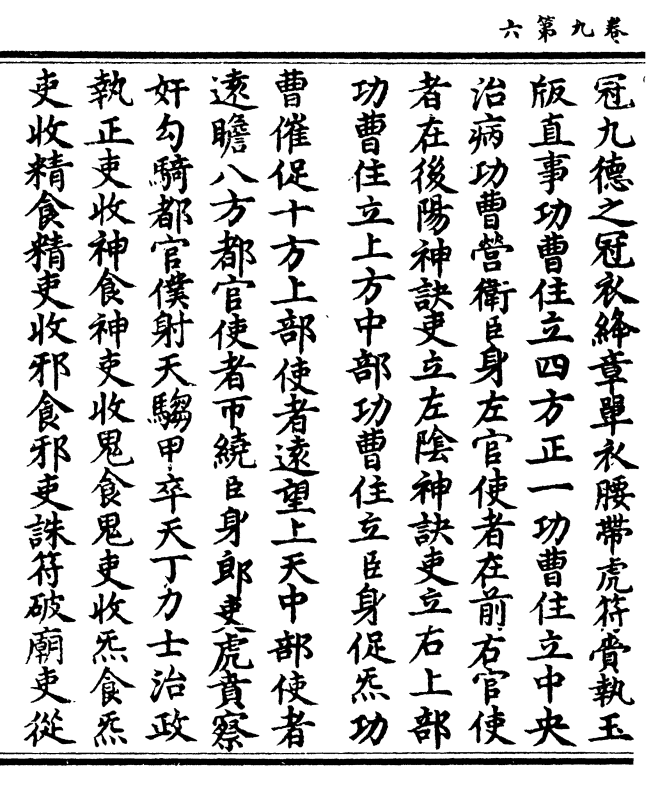 卷九第六
冠九德之冠衣絳章單衣腰帶虎符賫執玉
版直事功曹住立四方正一功曹住立中央
治病功曹營衛臣身左官使者在前右官使
者在後陽神訣吏立左陰神訣吏立右上部
功曹住立上方中部功曹住立臣身促炁功
曹催促十方上部使者遠望上天中部使者
遠瞻八方都官使者帀繞臣身郎吏虎賁察
奸勾騎都官僕射天騶甲卒天丁力士治政
執正吏收神食神吏收鬼食鬼吏收炁食炁
吏收精食精吏收邪食邪吏誅符破廟吏從